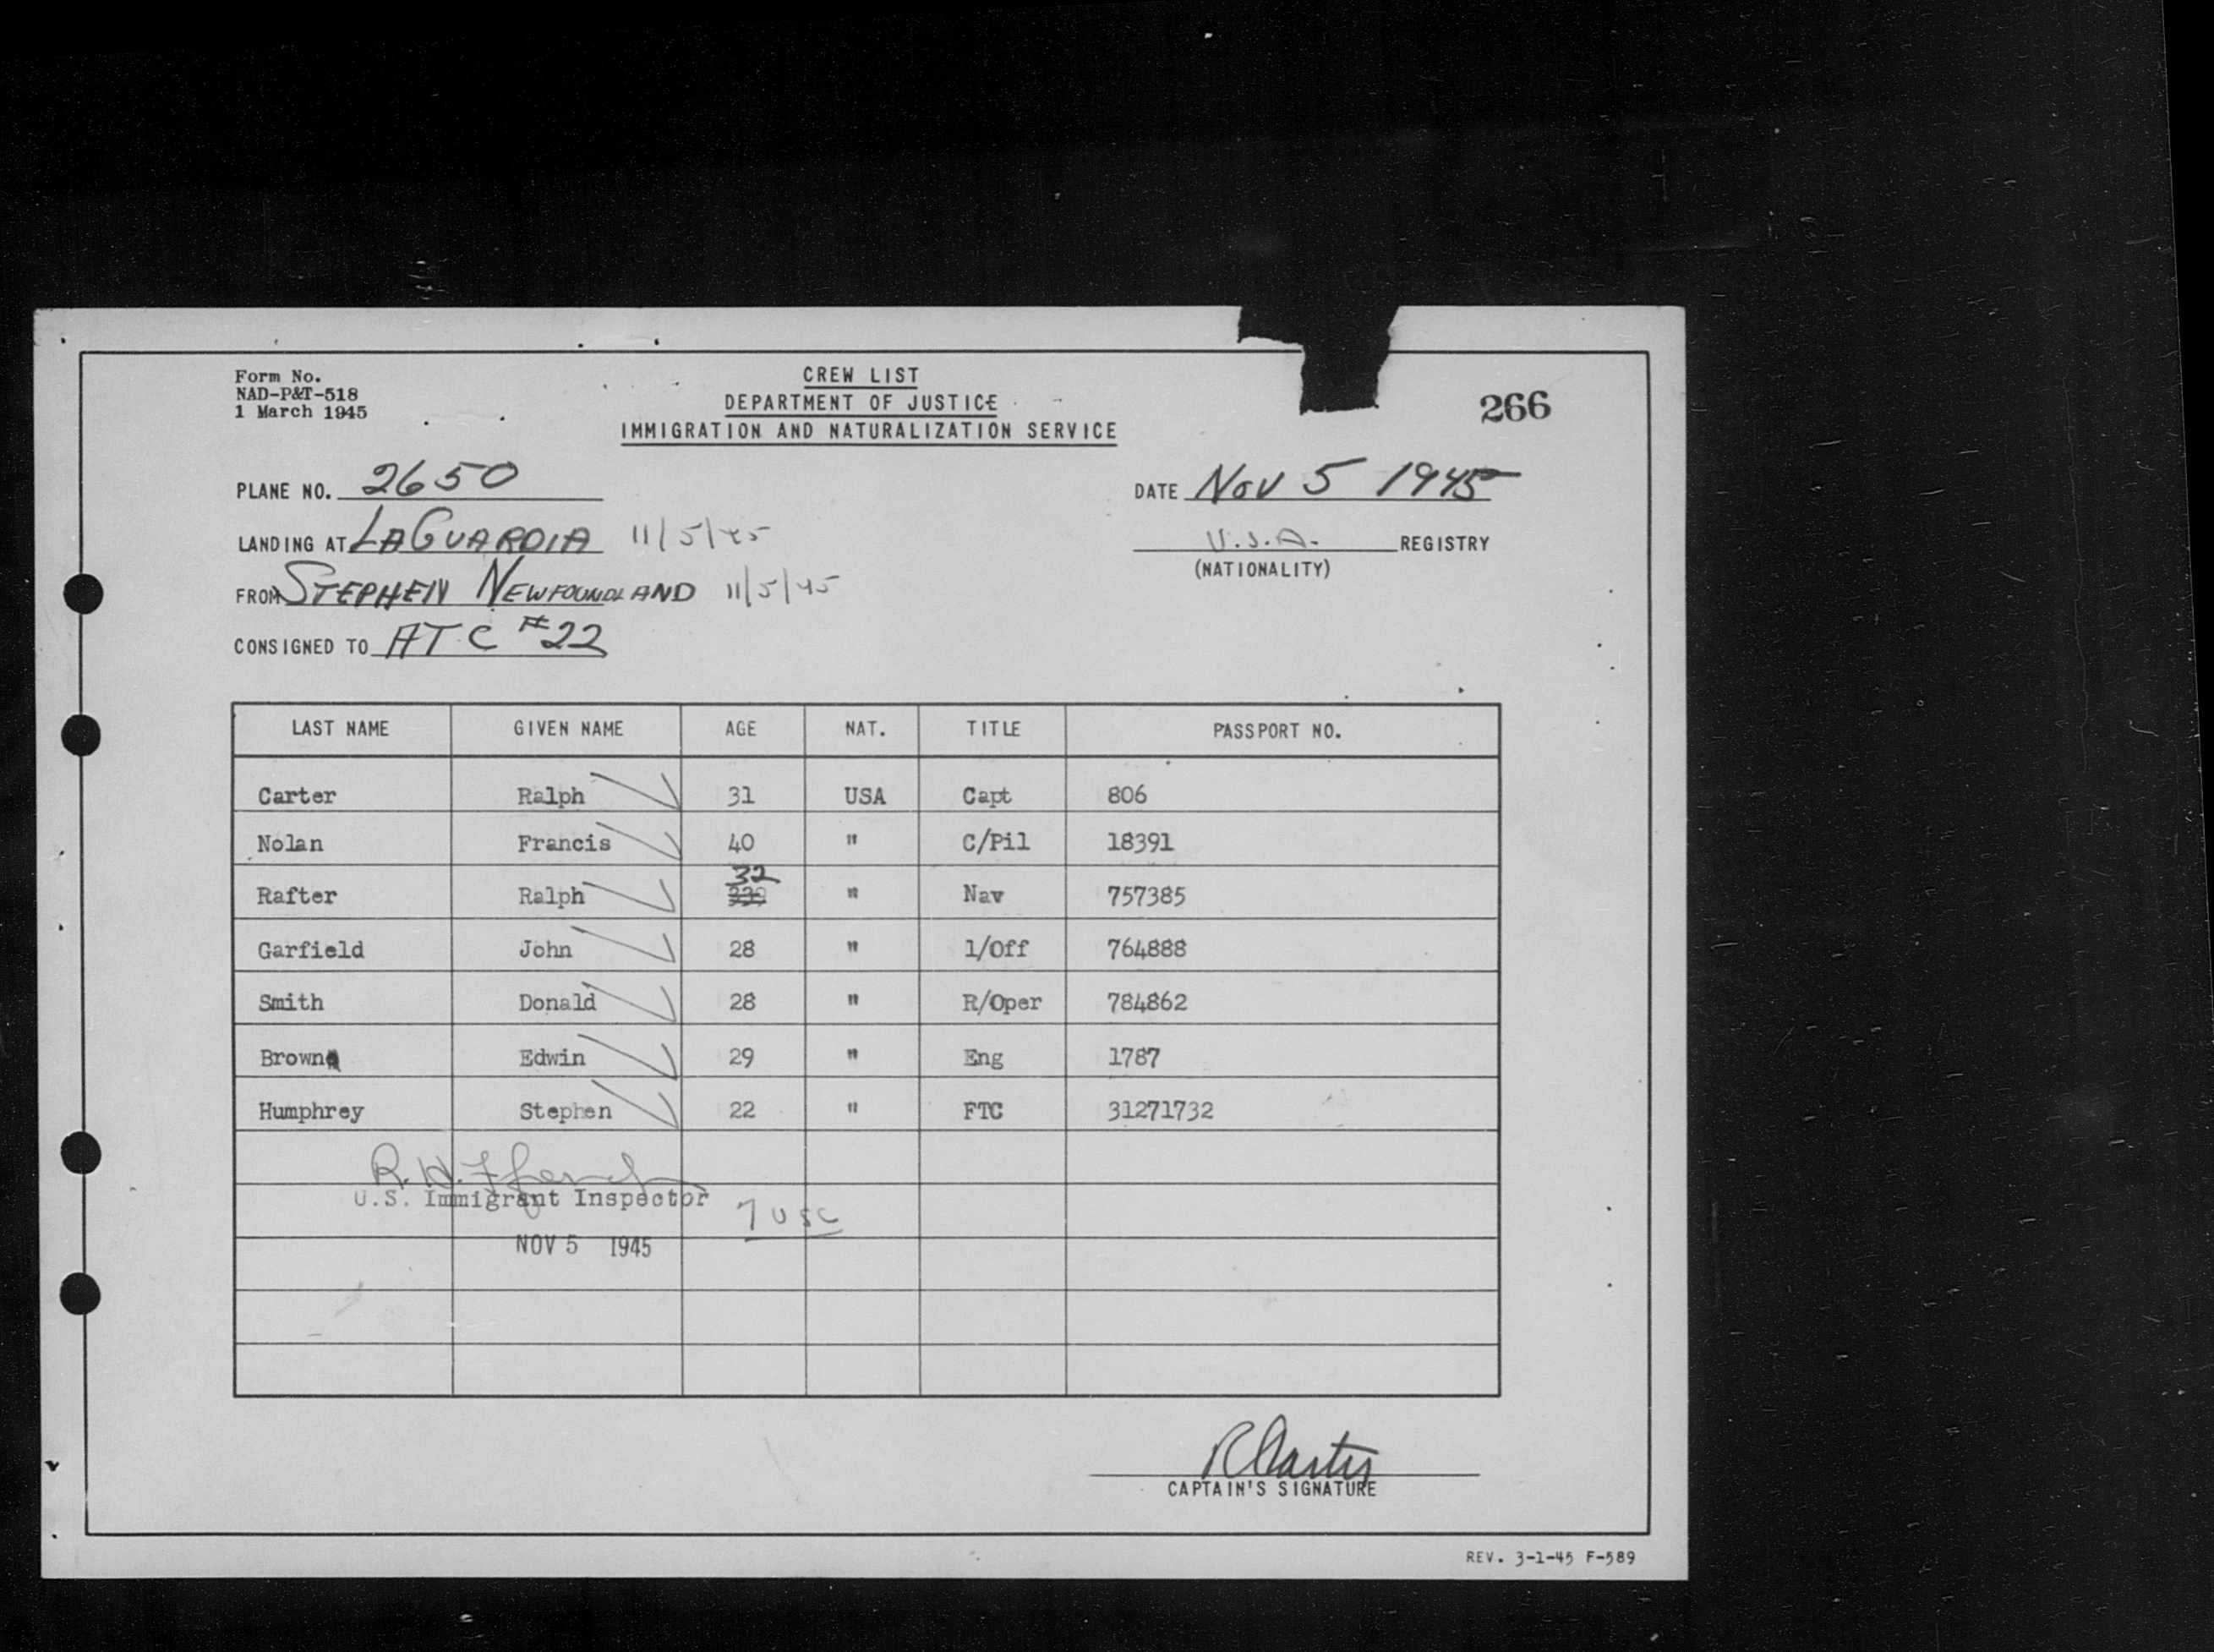 Form No.
NAD-P&T-518
1 March 1945
CREW LIST
DEPARTMENT OF JUSTICE
IMMIGRATION AND NATURALIZATION SERVICE
266
PLANE NO. 2650
DATE Nov 5 1945
LANDING AT LAGUARDIA 11/5/45
U.S.A. REGISTRY
(NATIONALITY)
FROM STEPHEN NEWFOUNDLAND 11/5/45
CONSIGNED TO ATC #22
LAST NAME GIVEN NAME AGE NAT. TITLE PASSPORT NO.
Carter Ralph 31 USA Capt 806
Nolan Francis 40 " C/Pil 18391
Rafter Ralph 32 " Nav 757385
Garfield John 28 " 1/Off 764888
Smith Donald 28 " R/Oper 784862
Brown Edwin 29 " Eng 1787
Humphrey Stephen 22 " FTC 31271732
R. H.
U.S. Immigrant Inspector
7 USC
NOV 5 1945
R Carter
CAPTAIN'S SIGNATURE
REV. 3-1-45 F-589